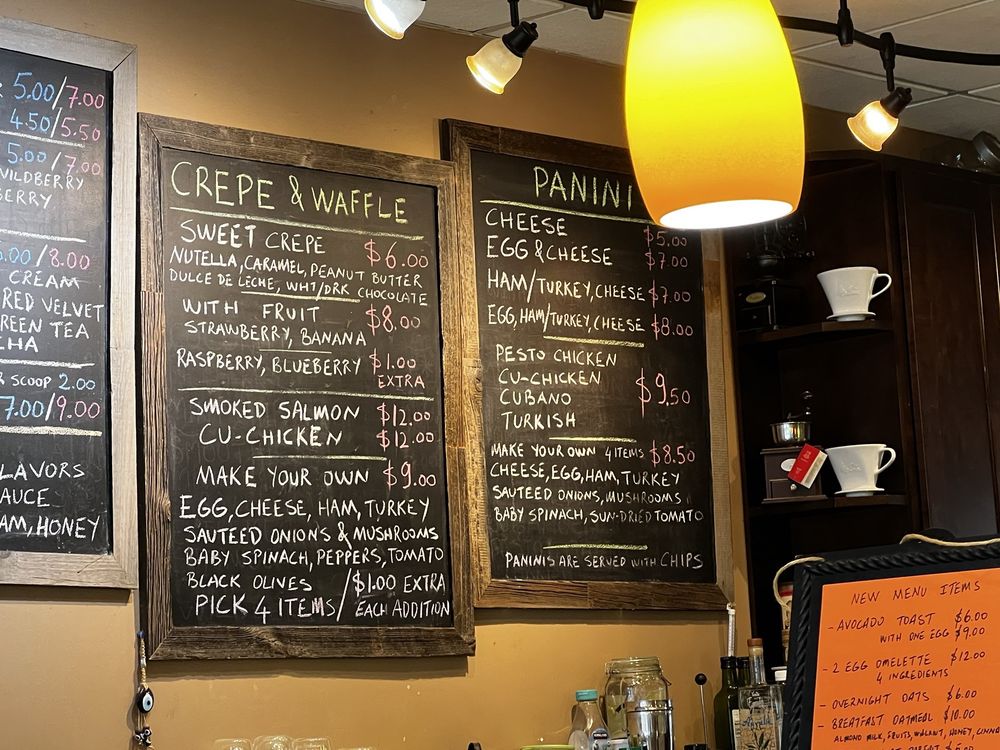 5.00/7.00
4.50/5.50
5.00/7.00
WILDBERRY
BERRY
.00/8.00
CREAM
RED VELVET
REEN TEA
CHA
SCOOP 2.00
7.00/9.00
LAVORS
AUCE
AM, HONEY
CREPE & WAFFLE
SWEET CREPE $6.00
NUTELLA, CARAMEL, PEANUT BUTTER
DULCE DE LECHE, WHT/DRK CHOCOLATE
WITH FRUIT $8.00
STRAWBERRY, BANANA
RASPBERRY, BLUEBERRY $1.00
EXTRA
SMOKED SALMON $12.00
CU-CHICKEN $12.00
MAKE YOUR OWN $9.00
EGG, CHEESE, HAM, TURKEY
SAUTEED ONIONS & MUSHROOMS
BABY SPINACH, PEPPERS, TOMATO
BLACK OLIVES / $1.00 EXTRA
PICK 4 ITEMS / EACH ADDITION
PANINI
CHEESE $5.00
EGG & CHEESE $7.00
HAM/TURKEY, CHEESE $7.00
EGG, HAM/TURKEY, CHEESE $8.00
PESTO CHICKEN
CU-CHICKEN
CUBANO $9.50
TURKISH
MAKE YOUR OWN 4 ITEMS $8.50
CHEESE, EGG, HAM, TURKEY
SAUTEED ONIONS, MUSHROOMS
BABY SPINACH, SUN-DRIED TOMATO
PANINIS ARE SERVED WITH CHIPS
NEW MENU ITEMS
- AVOCADO TOAST $6.00
WITH ONE EGG $9.00
- 2 EGG OMELETTE $12.00
4 INGREDIENTS
- OVERNIGHT OATS $6.00
- BREAKFAST OATMEAL $10.00
ALMOND MILK, FRUITS, WALNUT, HONEY,